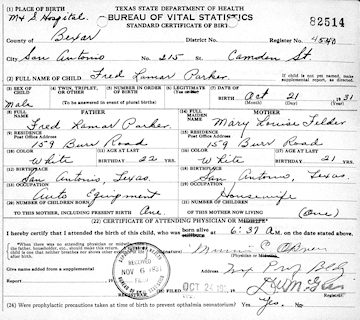 (1) PLACE OF BIRTH TEXAS STATE DEPARTMENT OF HEALTH
BUREAU OF VITAL STATISTICS 82514
STANDARD CERTIFICATE OF BIRTH
M & S Hospital
County of Bexar District No. Register No. 4540
City San Antonio No. 215 Camden St
(2) FULL NAME OF CHILD Fred Lamar Parker If child is not yet named, make supplemental report, as directed.
(3) SEX OF Male
(4) TWIN, TRIPLET, OR OTHER
(5) NUMBER IN ORDER OF BIRTH
(To be answered in event of plural births)
(6) LEGITIMATE Yes
(7) DATE OF BIRTH Oct 21 1931
FATHER
FULL NAME Fred Lamar Parker
(9) RESIDENCE Post Office Address 159 Burr Road
(10) COLOR White (11) AGE AT LAST BIRTHDAY 22 YRS.
(12) BIRTHPLACE San Antonio, Texas
Auto Equipment
MOTHER
FULL MAIDEN NAME Mary Louise Felder
RESIDENCE Post Office Address 159 Burr Road
COLOR White (17) AGE AT LAST BIRTHDAY 21 YRS.
BIRTHPLACE San Antonio, Texas
Housewife
TO THIS MOTHER, INCLUDING PRESENT BIRTH One
(21) NUMBER OF CHILDREN OF THIS MOTHER NOW LIVING (One)
(22) CERTIFICATE OF ATTENDING PHYSICIAN OR MIDWIFE
I hereby certify that I attended the birth of this child, who was born alive at 6:37 a.m. on the date stated above.
When there was no attending physician or midwife, then the father, householder, etc., should make this return.
Given name added from a supplemental report
RECEIVED NOV 6 1931
REGISTRAR
OCT 24 1931
Physician
Address
(24) Were prophylactic precautions taken at time of birth to prevent opthalmia neonatorium? Yes.